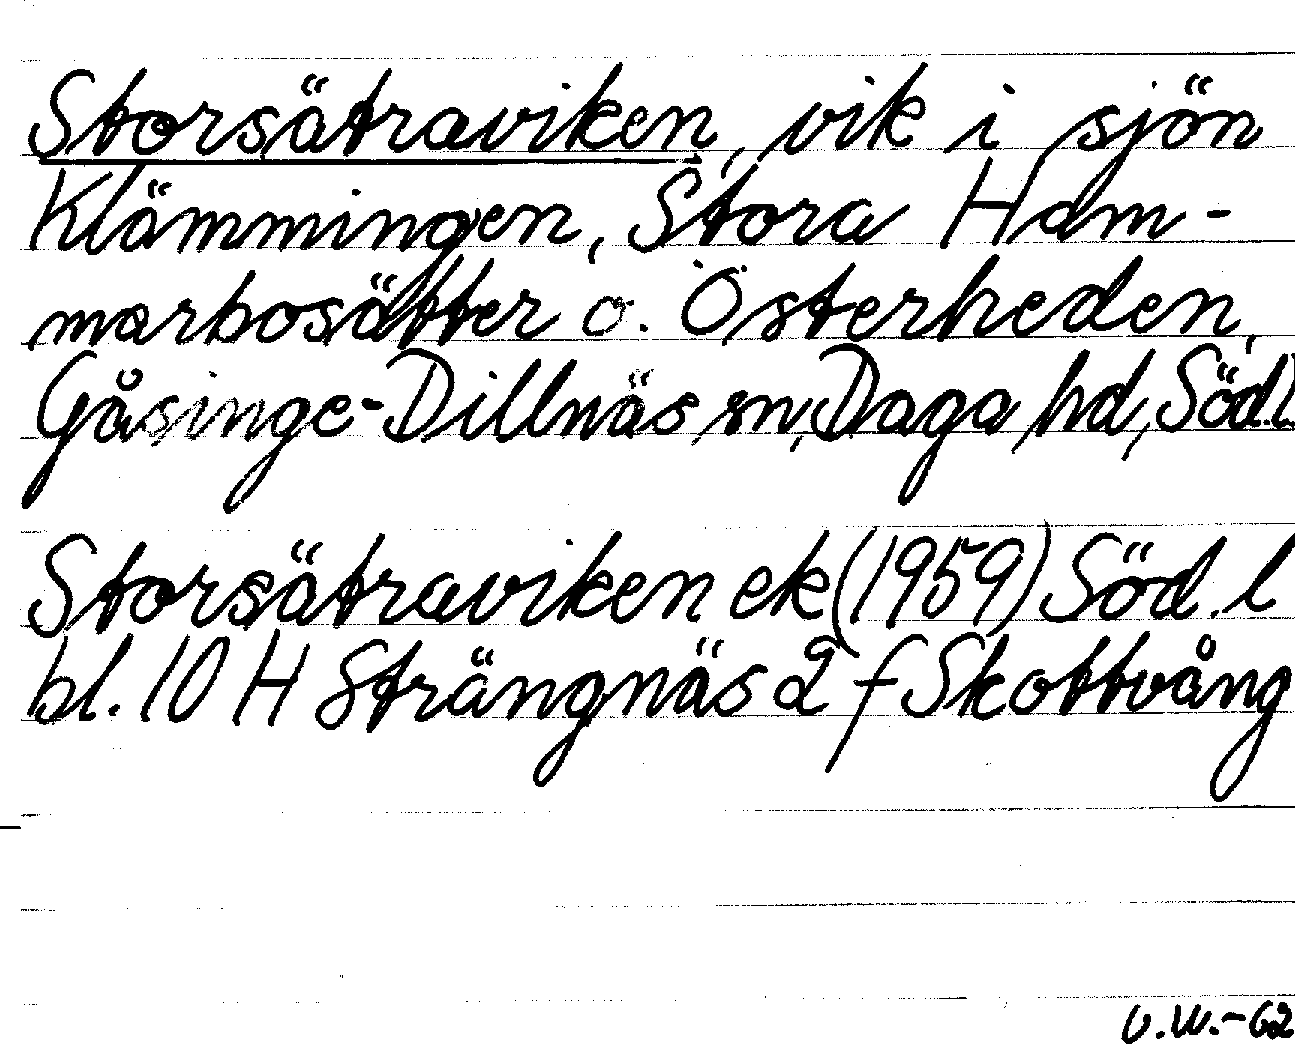 Storsätraviken, vik i sjön
Klämmingen, Stora Ham-
marbosätter o. Österheden,
Gåsinge-Dillnäs sn, Daga hd, Södl.
Storsätraviken ek (1959) Söd. l
bl. 10 H Strängnäs 2 f Skottvång
U.W.-62